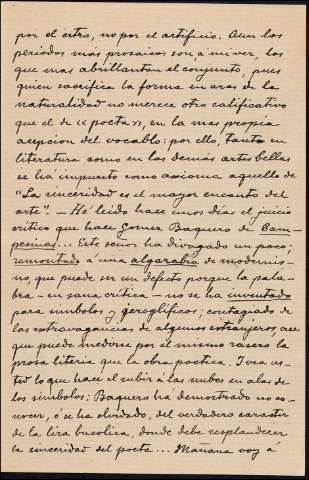 por el estro, no por el artificio. Aun los
periodos más prosaicos son, á mi ver, los
que mas abrillantan el conjunto, pues
quien sacrifica la forma en aras de la
naturalidad no merece otro calificativo
que el de «poeta», en la mas propia
acepcion del vocablo: por ello, tanto en
literatura como en las demás artes bellas
se ha impuesto como axioma aquello de
"La sinceridad es el mayor encanto del
arte". — Hé leido hace unos dias el juicio
critico que hace Gomez Baquero de Cam-
pesinas... Este señor ha divagado un poco;
remontado á una algarabia de modernis-
mo, que puede ser un defecto porque la pala-
bra – en sana critica – no se ha inventado
para simbolos y geroglificos; contagiado de
las extravagancias de algunos extranjeros, cree
que puede medirse por el mismo rasero la
prosa literia que la obra poetica. Y vea us-
ted lo que hace el subir á las nubes en alas de
los simbolos: Baquero ha demostrado no co-
nocer, ó se ha olvidado, del verdadero caracter
de la lira bucolica, donde debe resplandecer
la sinceridad del poeta... Mañana voy á